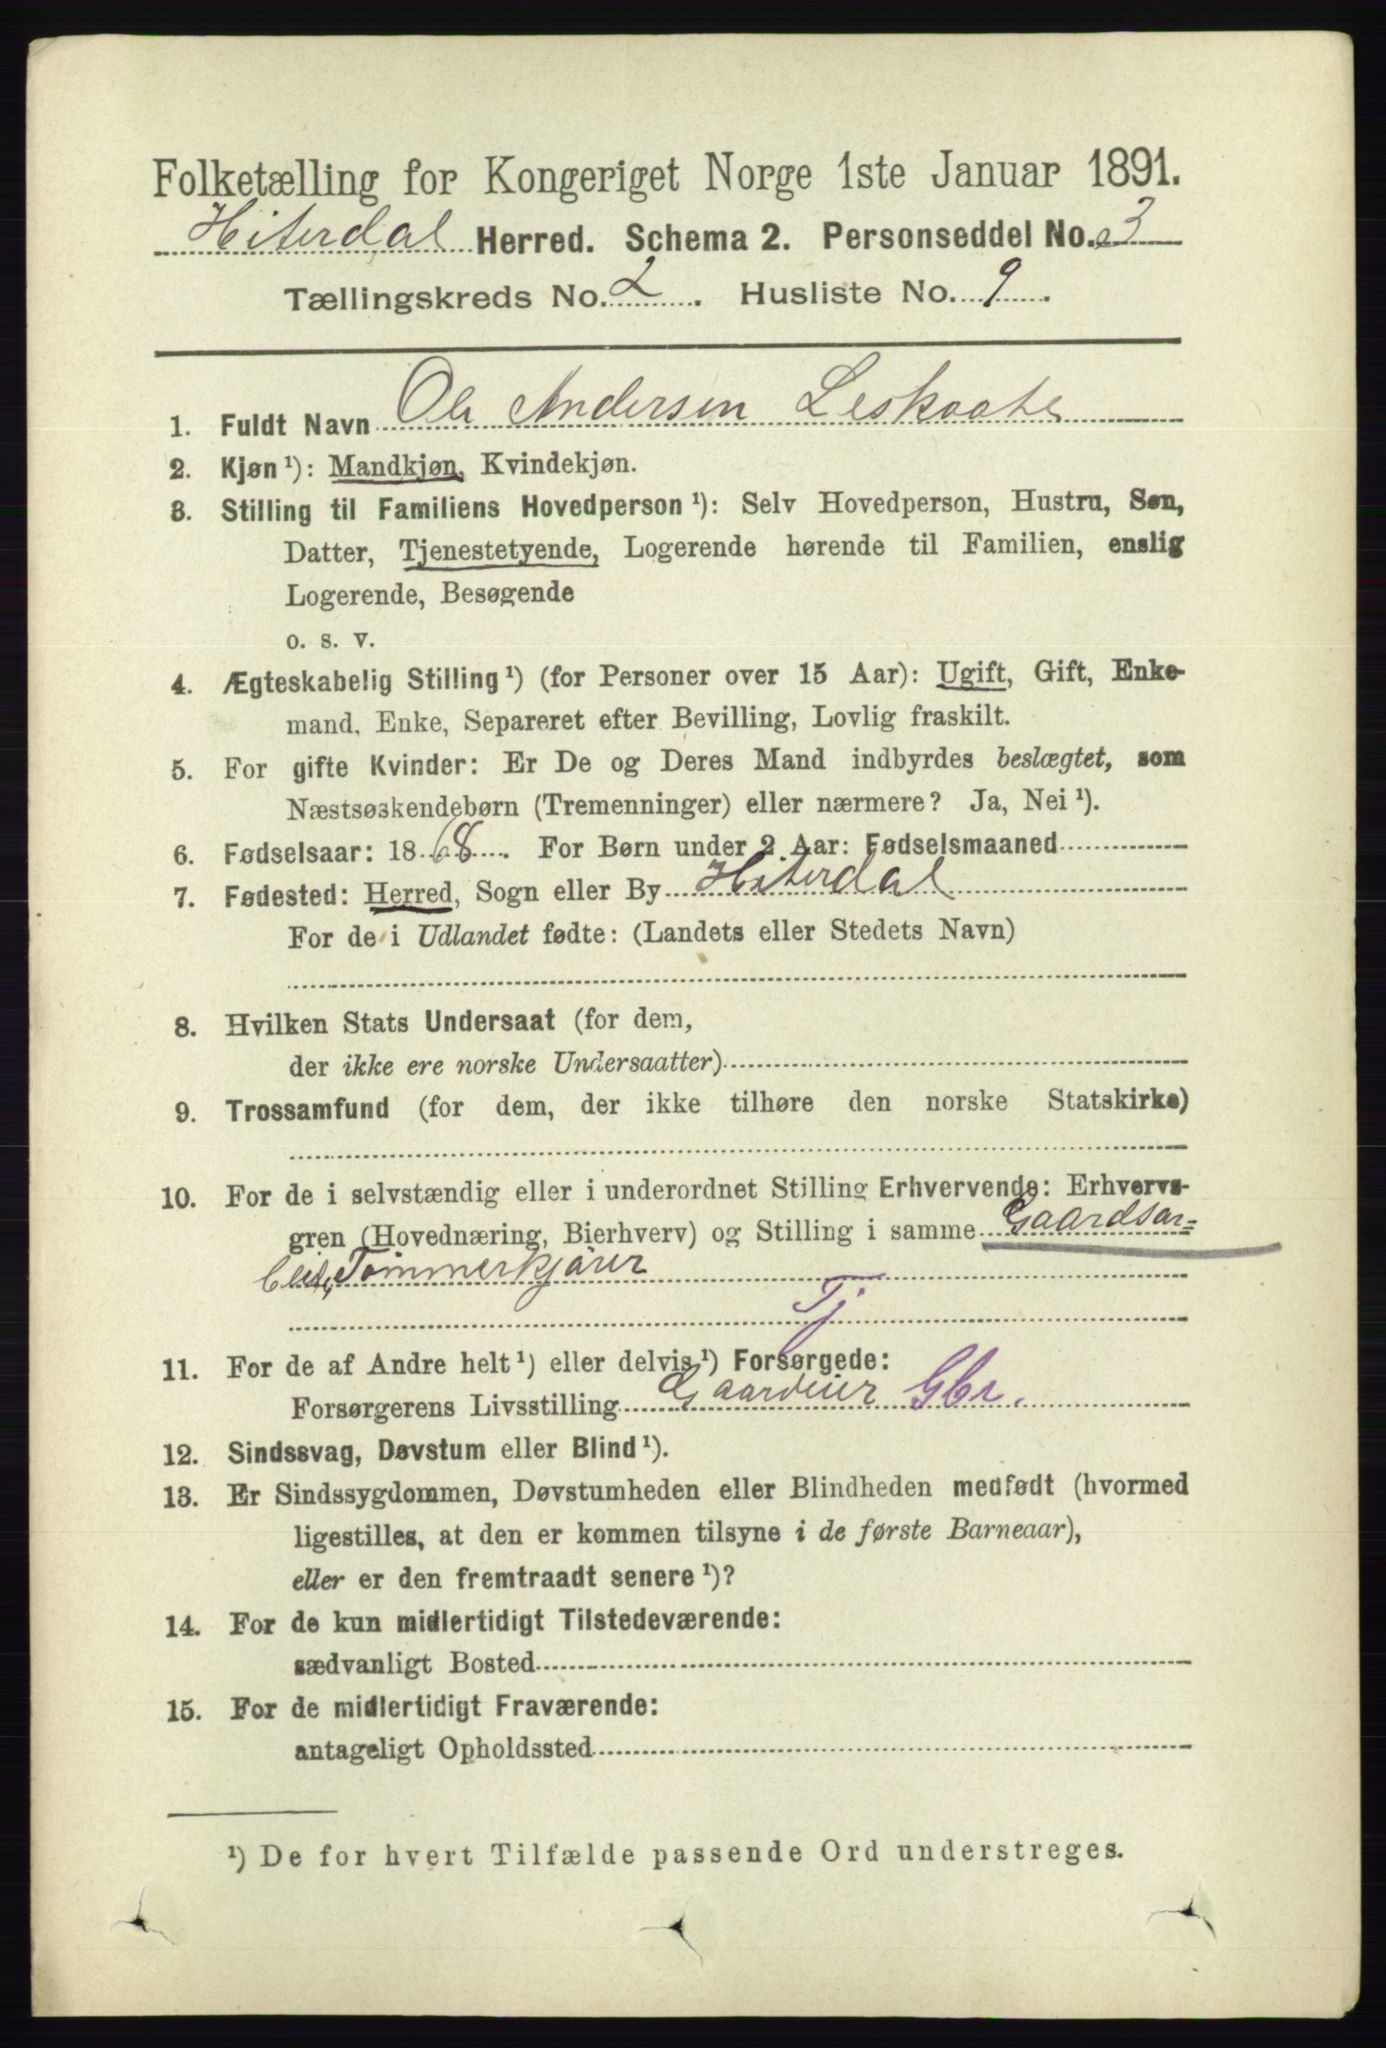 Folketælling for Kongeriget Norge 1ste Januar 1891.
Hiterdal Herred. Schema 2. Personseddel No. 3
Tællingskreds No. 2. Husliste No. 9.
1. Fuldt Navn Ole Andersen Leskaate
2. Kjøn ¹): Mandkjøn, Kvindekjøn.
3. Stilling til Familiens Hovedperson ¹): Selv Hovedperson, Hustru, Søn,
Datter, Tjenestetyende, Logerende hørende til Familien, enslig
Logerende, Besøgende
o. s. v.
4. Ægteskabelig Stilling ¹) (for Personer over 15 Aar): Ugift, Gift, Enke-
mand, Enke, Separeret efter Bevilling, Lovlig fraskilt.
5. For gifte Kvinder: Er De og Deres Mand indbyrdes beslægtet, som
Næstsøskendebørn (Tremenninger) eller nærmere? Ja, Nei ¹).
6. Fødselsaar: 1868. For Børn under 2 Aar: Fødselsmaaned
7. Fødested: Herred, Sogn eller By Hiterdal
For de i Udlandet fødte: (Landets eller Stedets Navn)
8. Hvilken Stats Undersaat (for dem,
der ikke ere norske Undersaatter)
9. Trossamfund (for dem, der ikke tilhøre den norske Statskirke)
10. For de i selvstændig eller i underordnet Stilling Erhvervende: Erhvervs-
gren (Hovednæring, Bierhverv) og Stilling i samme Gaardsar=
beide, Tømmerkjører
Tj
11. For de af Andre helt ¹) eller delvis ¹) Forsørgede:
Forsørgerens Livsstilling Gaardeier Gbr.
12. Sindssvag, Døvstum eller Blind ¹).
13. Er Sindssygdommen, Døvstumheden eller Blindheden medfødt (hvormed
ligestilles, at den er kommen tilsyne i de første Barneaar),
eller er den fremtraadt senere ¹)?
14. For de kun midlertidigt Tilstedeværende:
sædvanligt Bosted
15. For de midlertidigt Fraværende:
antageligt Opholdssted
¹) De for hvert Tilfælde passende Ord understreges.